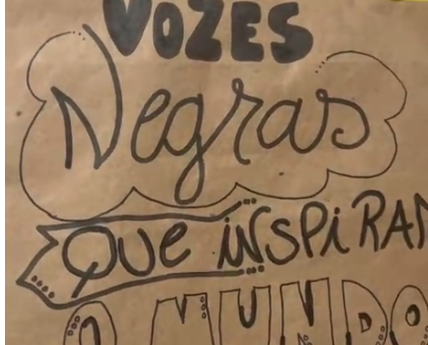 VOZES
Negras
QUE iNSPiRAM
O MUNDO